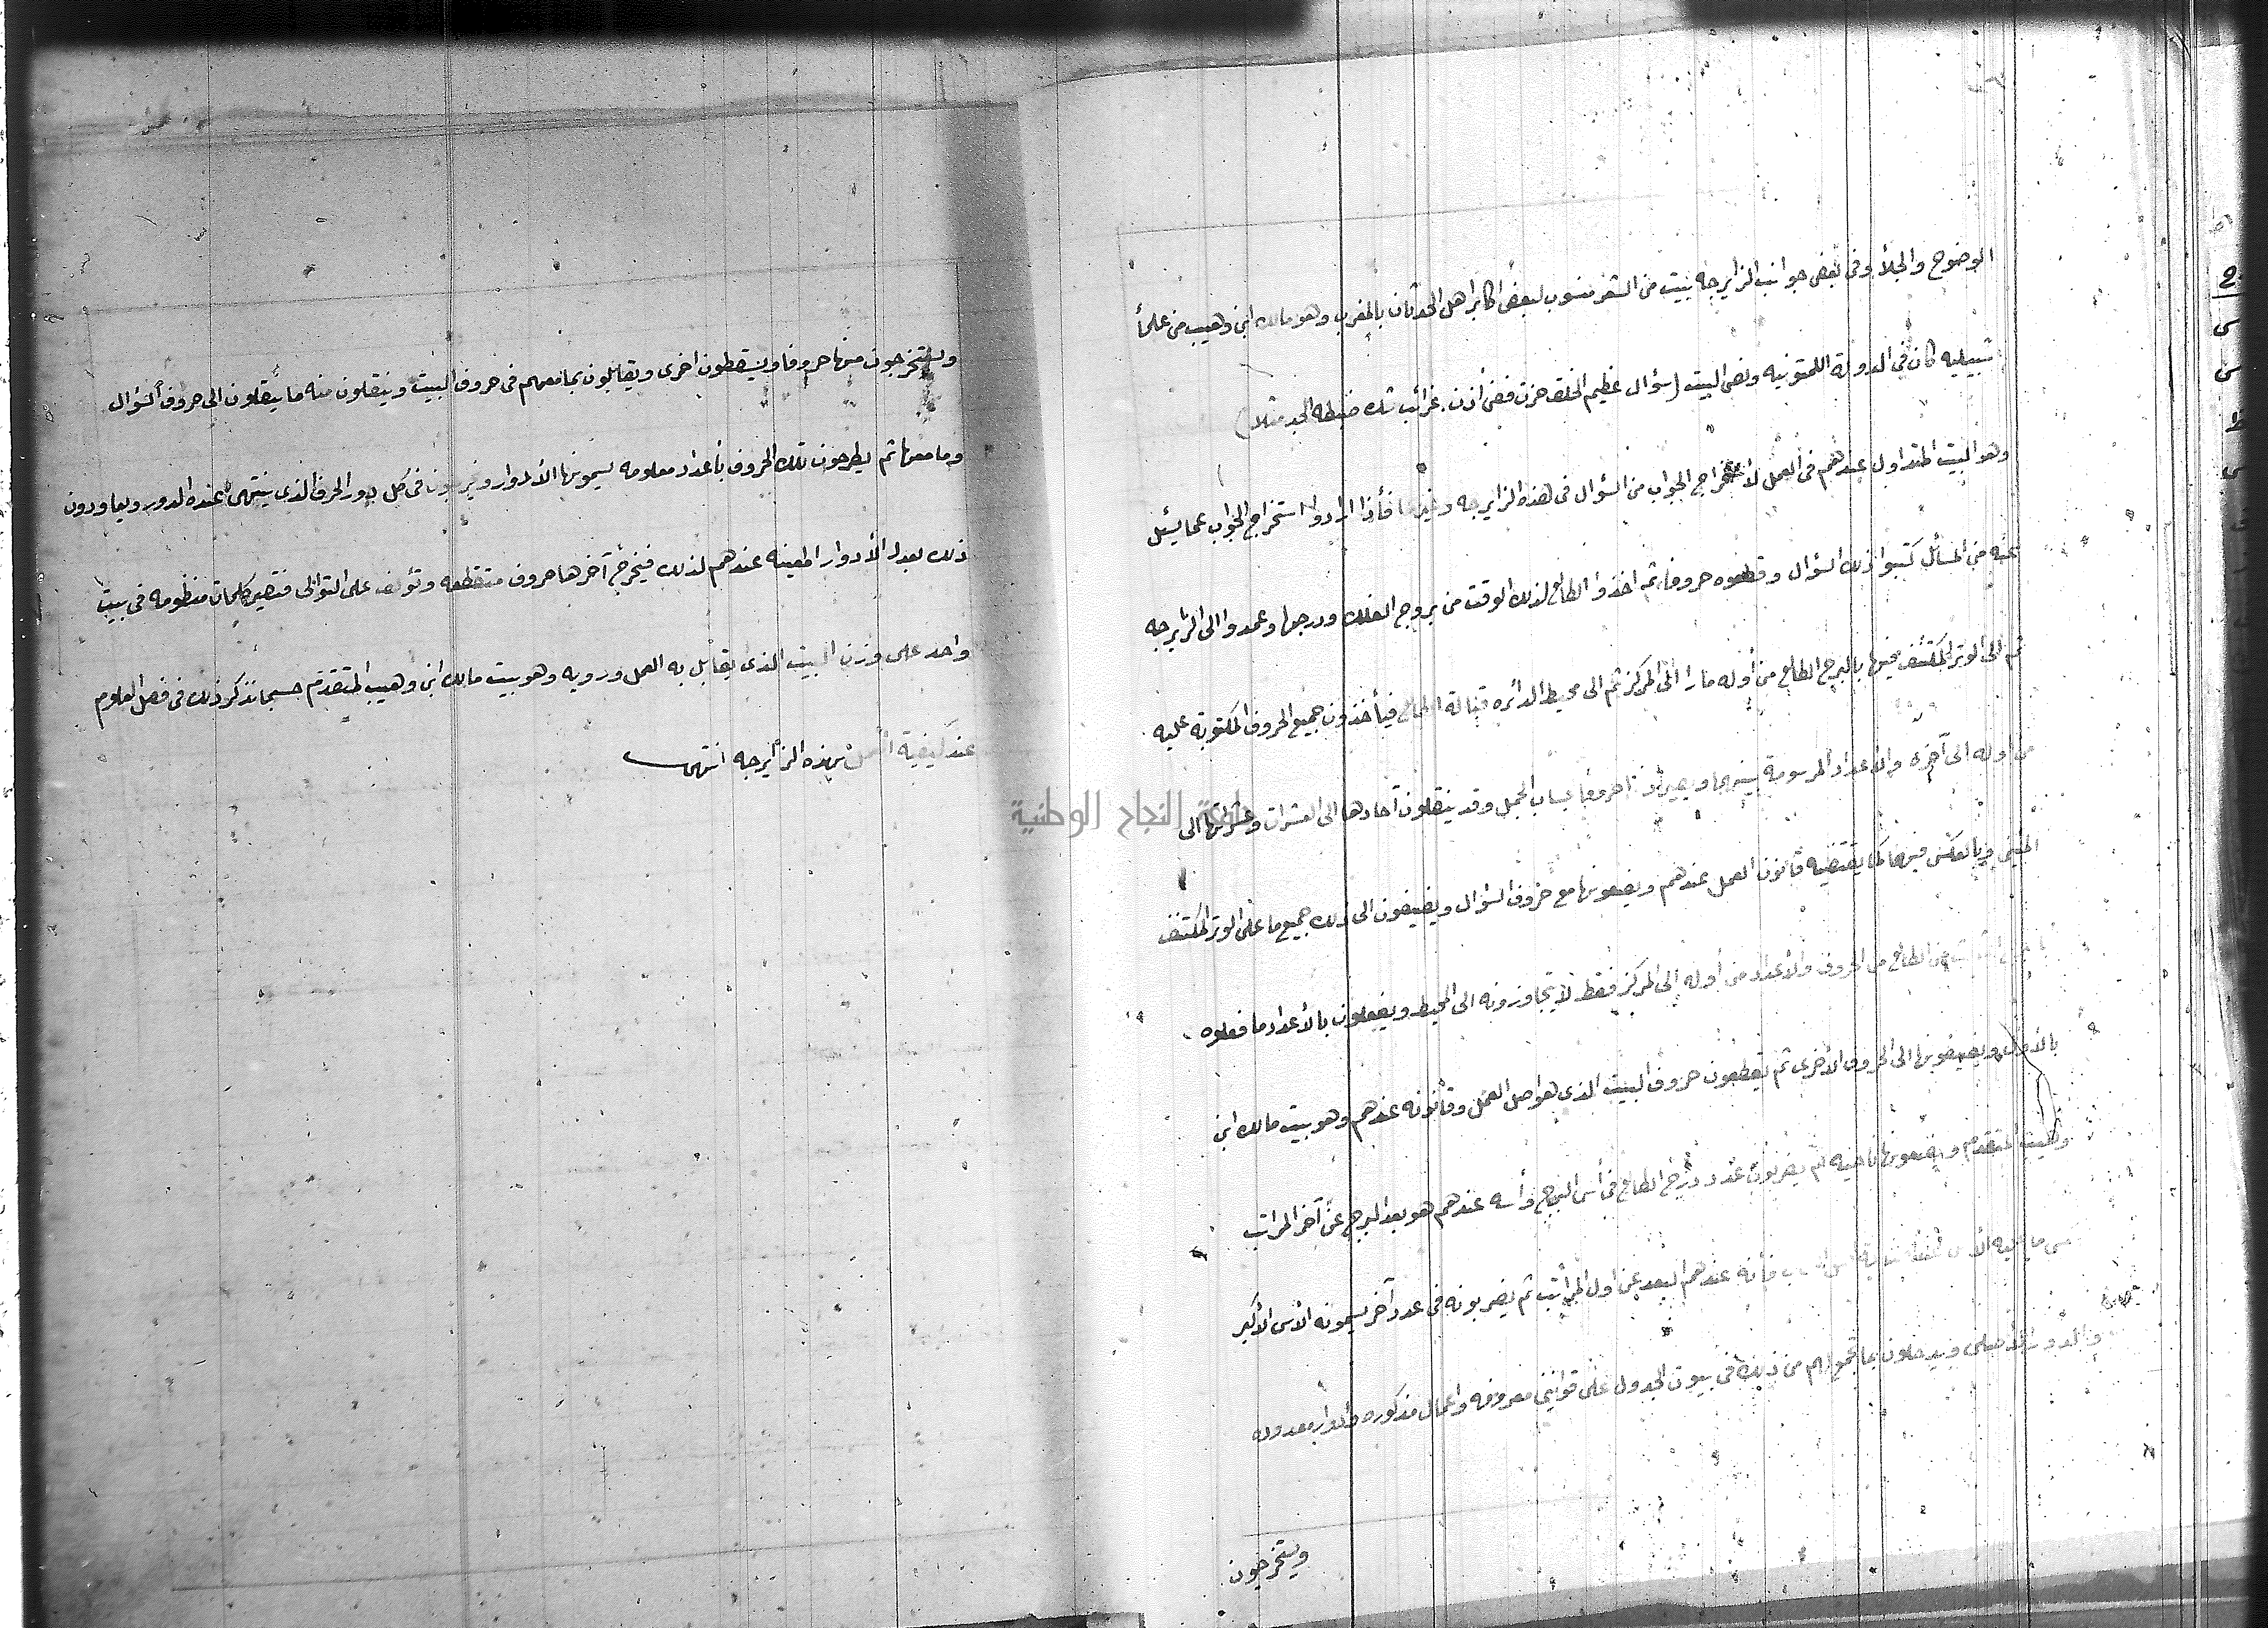 الوضوح والجلأ وفى بعض جوانب الزايرجه بيت من الشعر منسوب لبعض اكابر اهل الحدثان بالمغرب وهو مالك ابن وهيب من علمأ
شبيليه كان فى الدولة اللمتونيه ونص البيت (سؤال عظيم الخلق حزت فصن أذن . غرائب شك ضبطه الجد مثلا)
وهو البيت المتداول عندهم فى العمل لاستخراج الجواب من السؤال فى هذه الزايرجه وغيرها فأذا ارادوا استخراج الجواب عما يسئل
عنه من المسائل كتبوا ذلك السؤال وقطعوه حروفا ثم اخذوا الطالع لذلك الوقت من بروج الفلك ودرجها وعمدوا الى الزايرجه
ثم الى الوتر المكتنف فيها بالبرج الطالع من أوله مارا الى المركز ثم الى محيط الدائره قبالة الطالع فيأخذون جميع الحروف المكتوبة عليه
من اوله الى آخره والاعداد المرسومة بينهما ويصيرونها حروفا بحساب الجمل وقد ينقلون آحادها الى العشرات وعشراتها الى
المئين وبالعكس فيهما كما يقتضيه قانون العمل عندهم ويضعونها مع حروف السؤال ويضيفون الى ذلك جميع ما على الوتر المكتنف
من الطالع من الحروف والأعداد من أوله الى المركز فقط لا يتجاوزونه الى المحيط ويفعلون بالأعداد ما فعلوه
بالأول ويضيفونها الى الحروف الأخرى ثم يقطعون حروف البيت الذى هو اصل العمل وقانونه عندهم وهو بيت مالك ابن
وهيب المتقدم ويضعونها ناحيه ثم يضربون عدد درج الطالع فى أس البرج وأسه عندهم هو بعد البرج عن آخر المراتب
ما عليه الأس عندهم البعد عن اول المراتب ثم يضربونه فى عدد آخر يسمونه الأس الأكبر
والدور الأصلى ويدخلون بما تجمع لهم من ذلك فى بيوت الجدول على قوانين معروفه واعمال مذكوره وأدوار معدوده
ويستخرجون
ويستخرجون منها حروفا ويسقطون اخرى ويقابلون بما معهم فى حروف البيت وينقلون منه ما ينقلون الى حروف السؤال
وما معها ثم يطرحون تلك الحروف بأعداد معلومه يسمونها الأدوار ويخرجون فى كل دور الحرف الذى ينتهى عنده الدور ويعاودون
ذلك بعدد الأدوار المعينه عندهم لذلك فيخرج آخرها حروف متقطعه وتؤلف على التوالى فتصير كلمات منظومه فى بيت
واحد على وزن البيت الذى يقابل به العمل ورويه وهو بيت مالك ابن وهيب المتقدم حسبما نذكر ذلك فى فصل العلوم
عند كيفية العمل بهذه الزايرجه انتهى
جامعة النجاح الوطنية